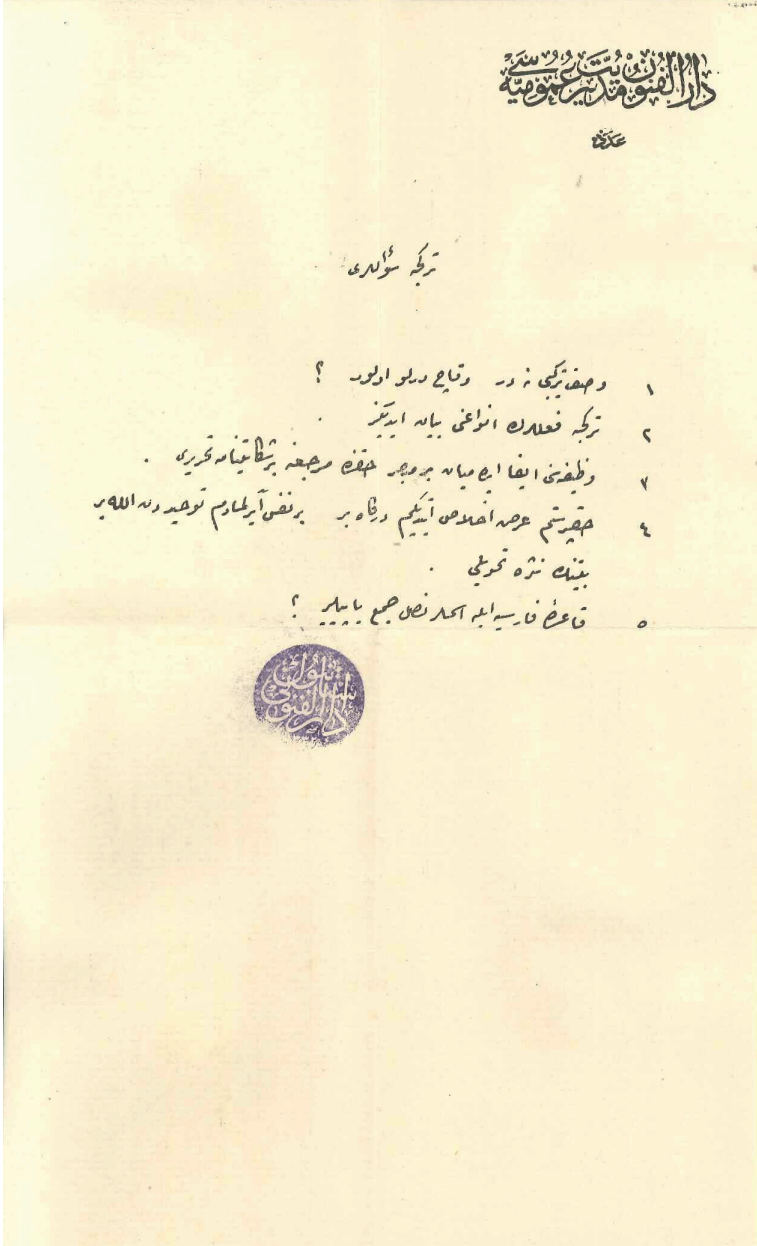 دار الفنون مدیریت عمومیه سی
عدد
تركجه سؤاللری
١ وصف تركیبی نه در وقاچ درلو اولور ؟
٢ تركجه فعللرك انواعنی بیان ایدیكز
٣ وظیفه سنی ایفا ایده میان بر مأمور حقنده مرجعنه بر شكایتنامه تحریری .
٤ حقپرستم عرض اخلاص ایتدیكم دركاه بر بر نفس آیرلمادم توحیددن الله بر
بیتنك نثره تحویلی .
٥ قاعدۀ فارسیه ایله اسملر نصل جمع یاپیلیر ؟
دار الفنون